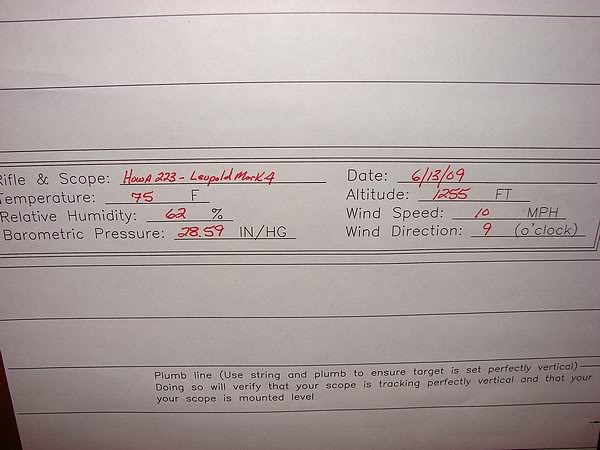 Rifle & Scope: Howa 223 - Leupold Mark 4
Date: 6/13/09
Temperature: 75 F
Altitude: 1255 FT
Relative Humidity: 62 %
Wind Speed: 10 MPH
Barometric Pressure: 28.59 IN/HG
Wind Direction: 9 (o'clock)
Plumb line (Use string and plumb to ensure target is set perfectly vertical)
Doing so will verify that your scope is tracking perfectly vertical and that your
your scope is mounted level